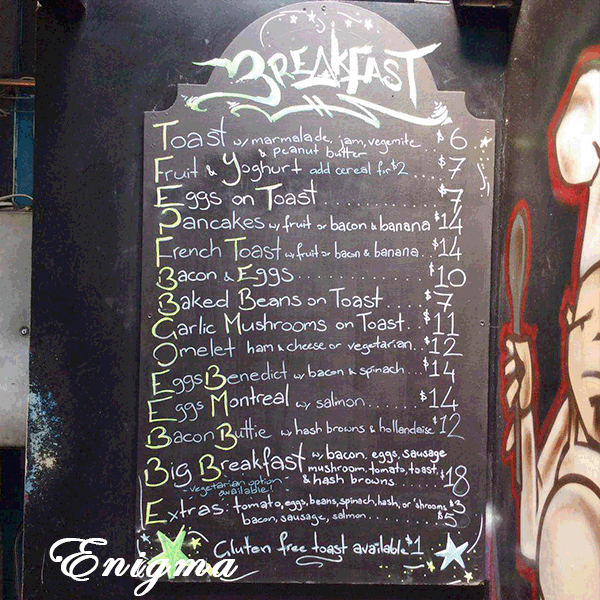 BREAKFAST
Toast w/ marmalade, jam, vegemite .. $6
& peanut butter
Fruit & Yoghurt add cereal for $2 . $7
Eggs on Toast .............. $7
Pancakes w/ fruit or bacon & banana $14
French Toast w/ fruit or bacon & banana .. $14
Bacon & Eggs ................ $10
Baked Beans on Toast ..... $7
Garlic Mushrooms on Toast.. $11
Omelet ham & cheese or vegetarian.. $12
Eggs Benedict w/ bacon & spinach.... $14
Eggs Montreal w/ salmon....... $14
Bacon Buttie w/ hash browns & hollandaise $12
Big Breakfast w/ bacon, eggs, sausage
mushroom, tomato, toast,
& hash browns $18
- vegetarian option -
available!
Extras: tomato, eggs, beans, spinach, hash, or 'shrooms $3
bacon, sausage, salmon........... $5
Gluten free toast available $1
Enigma